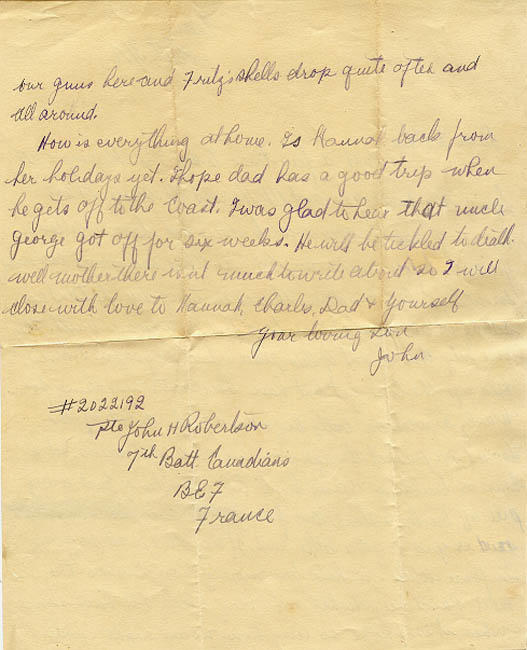 our guns here and Fritz's shells drop quite often and
all around.
How is everything at home. Is Hannah back from
her holidays yet. I hope dad has a good trip when
he gets off to the Coast. I was glad to hear that uncle
George got off for six weeks. He will be tickled to death.
well mother there isnt much to write about so I will
close with love to Hannah, Charles, Dad & Yourself
Your loving Son
John
#2022192
Pte John H Robertson
7th Batt. Canadians
B E F
France